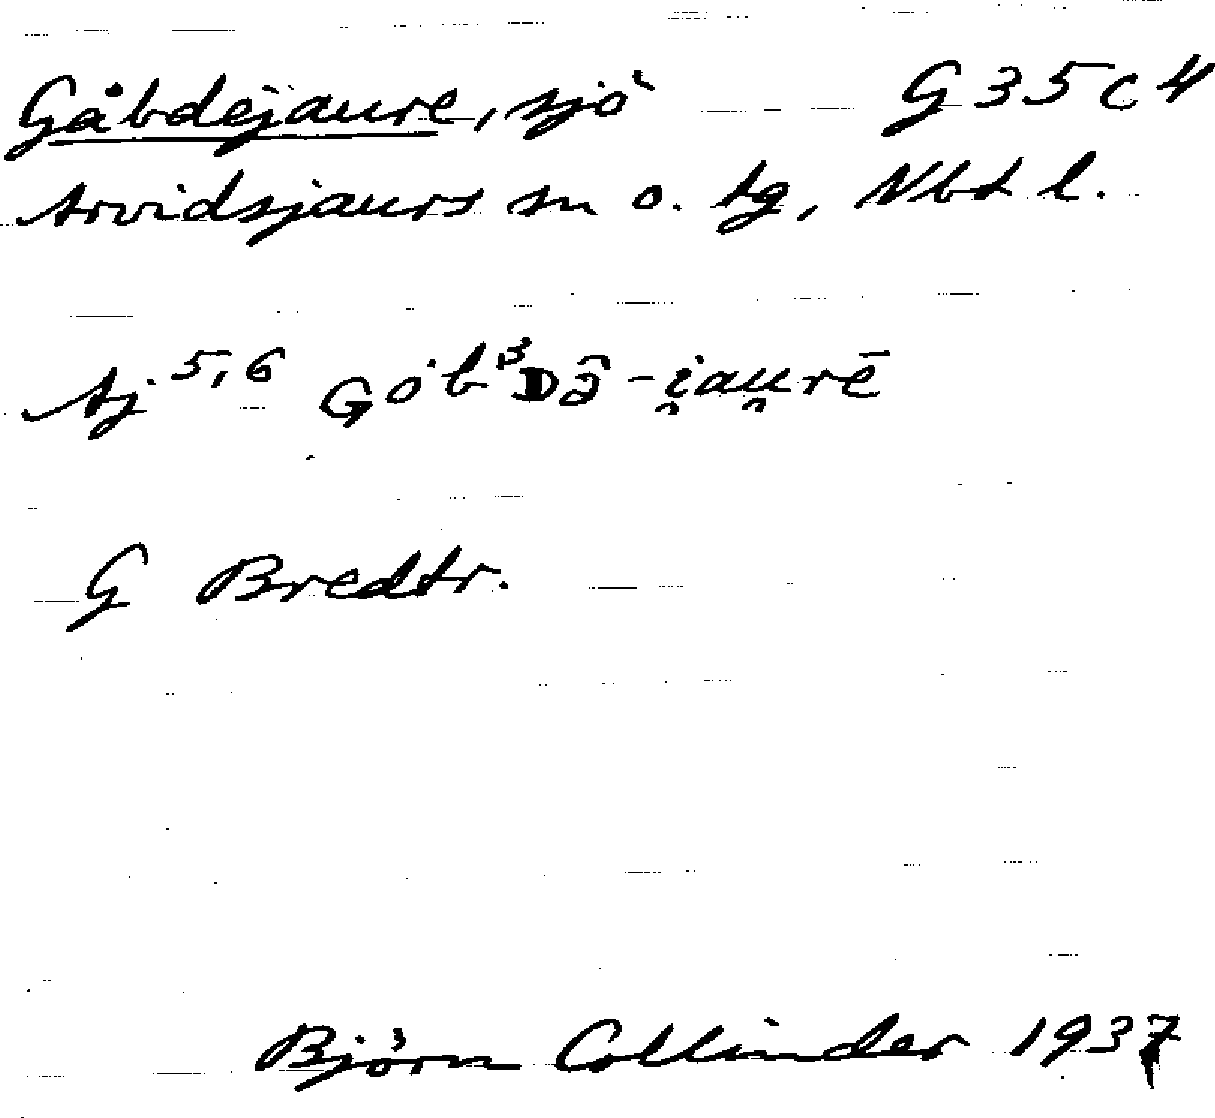 Gåbdejaure, sjö G 35 c 4
Arvidsjaurs sn o. tg, Nbt l.
Aj 5,6 Gȯb³Dâ-i̯au̯rē
G Bredtr.
Björn Collinder 1937